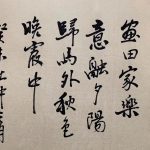 画田家乐
意融夕陽
歸鳥外秋色
晚霞中